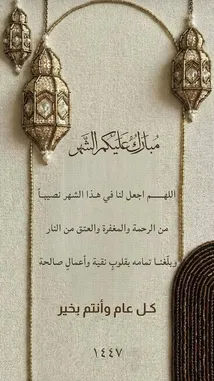 مبارك عليكم الشهر
اللهـــم اجعل لنا في هـذا الشهر نصيبـاً
من الرحمة والمغفرة والعتق من النار
ويلّغنـا تمامه بقلوبٍ نقية وأعمالٍ صالحة
كـل عـام وأنتـم بخيـر
١٤٤٧